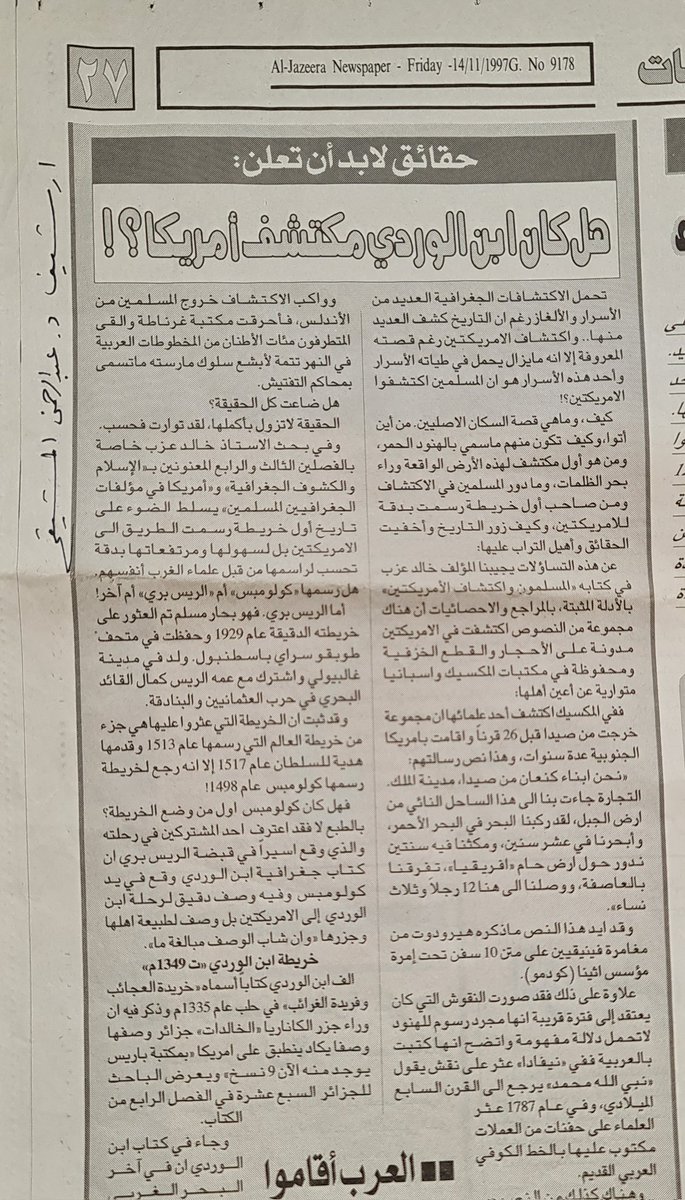 ٢٧
Al-Jazeera Newspaper - Friday -14/11/1997G. No 9178
ارشيف د. عبدالرحمن
حقائق لابد أن تعلن:
هل كان ابن الوردي مكتشف أمريكا؟!
تحمل الاكتشافات الجغرافية العديد من
الأسرار والألغاز رغم ان التاريخ كشف العديد
منها.. واكتشاف الامريكتين رغم قصته
المعروفة إلا انه مايزال يحمل في طياته الأسرار
وأحد هذه الأسرار هو ان المسلمين اكتشفوا
الامريكتين؟!
كيف، وماهي قصة السكان الاصليين. من أين
أتوا، وكيف تكون منهم ماسمي بالهنود الحمر،
ومن هو أول مكتشف لهذه الأرض الواقعة وراء
بحر الظلمات، وما دور المسلمين في الاكتشاف
ومن صاحب أول خريطة رسمت بدقة
للامريكتين، وكيف زور التاريخ وأخفيت
الحقائق وأهيل التراب عليها:
عن هذه التساؤلات يجيبنا المؤلف خالد عزب
في كتابه «المسلمون واكتشاف الأمريكتين»
بالأدلة المثبتة، بالمراجع والاحصائيات أن هناك
مجموعة من النصوص اكتشفت في الامريكتين
مدونة على الأحجار والقطع الخزفية
ومحفوظة في مكتبات المكسيك واسبانيا
متوارية عن أعين اهلها:
ففي المكسيك اكتشف أحد علمائها ان مجموعة
خرجت من صيدا قبل 26 قرناً واقامت بامريكا
الجنوبية عدة سنوات، وهذا نص رسالتهم:
«نحن أبناء كنعان من صيدا، مدينة الملك.
التجارة جاءت بنا الى هذا الساحل النائي من
ارض الجبل، لقد ركبنا البحر في البحر الأحمر،
وأبحرنا في عشر سنين، ومكثنا فيه سنتين
ندور حول أرض حام «افريقيا»، تفرقنا
بالعاصفة، ووصلنا الى هنا 12 رجلاً وثلاث
نساء».
وقد ايد هذا النص ماذكره هيرودوت من
مغامرة فينيقيين على متن 10 سفن تحت إمرة
مؤسس اثينا (كودمو).
علاوة على ذلك فقد صورت النقوش التي كان
يعتقد إلى فترة قريبة انها مجرد رسوم للهنود
لاتحمل دلالة مفهومة واتضح انها كتبت
بالعربية ففي «نيفادا» عثر على نقش يقول
«نبي الله محمد» يرجع الى القرن السابع
الميلادي، وفي عام 1787 عثر
العلماء على حفنات من العملات
مكتوب عليها بالخط الكوفي
العربي القديم.
وهناك كذلك من
وواكب الاكتشاف خروج المسلمين من
الأندلس، فأحرقت مكتبة غرناطة والقى
المتطرفون مئات الأطنان من المخطوطات العربية
في النهر تتمة لأبشع سلوك مارسته ماتسمى
بمحاكم التفتيش.
هل ضاعت كل الحقيقة؟
الحقيقة لاتزول بأكملها، لقد توارت فحسب.
وفي بحث الاستاذ خالد عزب خاصة
بالفصلين الثالث والرابع المعنونين بـ«الإسلام
والكشوف الجغرافية» و«أمريكا في مؤلفات
الجغرافيين المسلمين» يسلط الضوء على
تاريخ أول خريطة رسمت الطريق الى
الامريكتين بل لسهولها ومرتفعاتها بدقة
تحسب لراسمها من قبل علماء الغرب أنفسهم.
هل رسمها «كولومبس» أم «الريس بري» أم آخر!
أما الريس بري. فهو بحار مسلم تم العثور على
خريطته الدقيقة عام 1929 وحفظت في متحف
طوبقو سراي باسطنبول. ولد في مدينة
غاليبولي واشترك مع عمه الريس كمال القائد
البحري في حرب العثمانيين والبنادقة.
وقد ثبت ان الخريطة التي عثروا عليها هي جزء
من خريطة العالم التي رسمها عام 1513 وقدمها
هدية للسلطان عام 1517 إلا انه رجع لخريطة
رسمها كولومبس عام 1498!
فهل كان كولومبس اول من وضع الخريطة؟
بالطبع لا فقد اعترف احد المشتركين في رحلته
والذي وقع اسيراً في قبضة الريس بري ان
كتاب جغرافية ابن الوردي وقع في يد
كولومبس وفيه وصف دقيق لرحلة ابن
الوردي إلى الامريكتين بل وصف لطبيعة اهلها
وجزرها «وان شاب الوصف مبالغة ما».
خريطة ابن الوردي «ت 1349م»
الف ابن الوردي كتاباً أسماه «خريدة العجائب
وفريدة الغرائب» في حلب عام 1335م وذكر فيه ان
وراء جزر الكاناريا «الخالدات» جزائر وصفها
وصفا يكاد ينطبق على امريكا «بمكتبة باريس
يوجد منه الآن 9 نسخ» ويعرض الباحث
للجزائر السبع عشرة في الفصل الرابع من
الكتاب.
وجاء في كتاب ابن
الوردي ان في آخر
البحر الغربي
العرب أقاموا